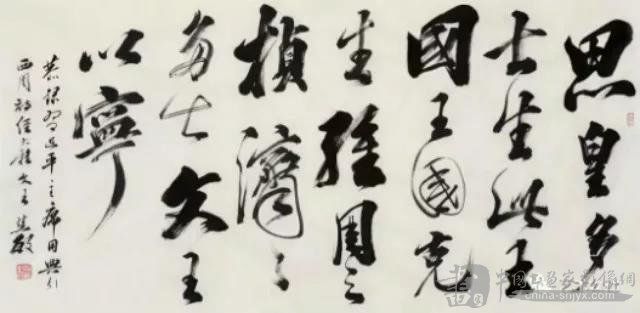 思皇多
士生此王
國王國克
生維周之
楨濟々
多士文王
以寧
恭録習近平主席用典引
西周詩經大雅文王
china-snjyx.com